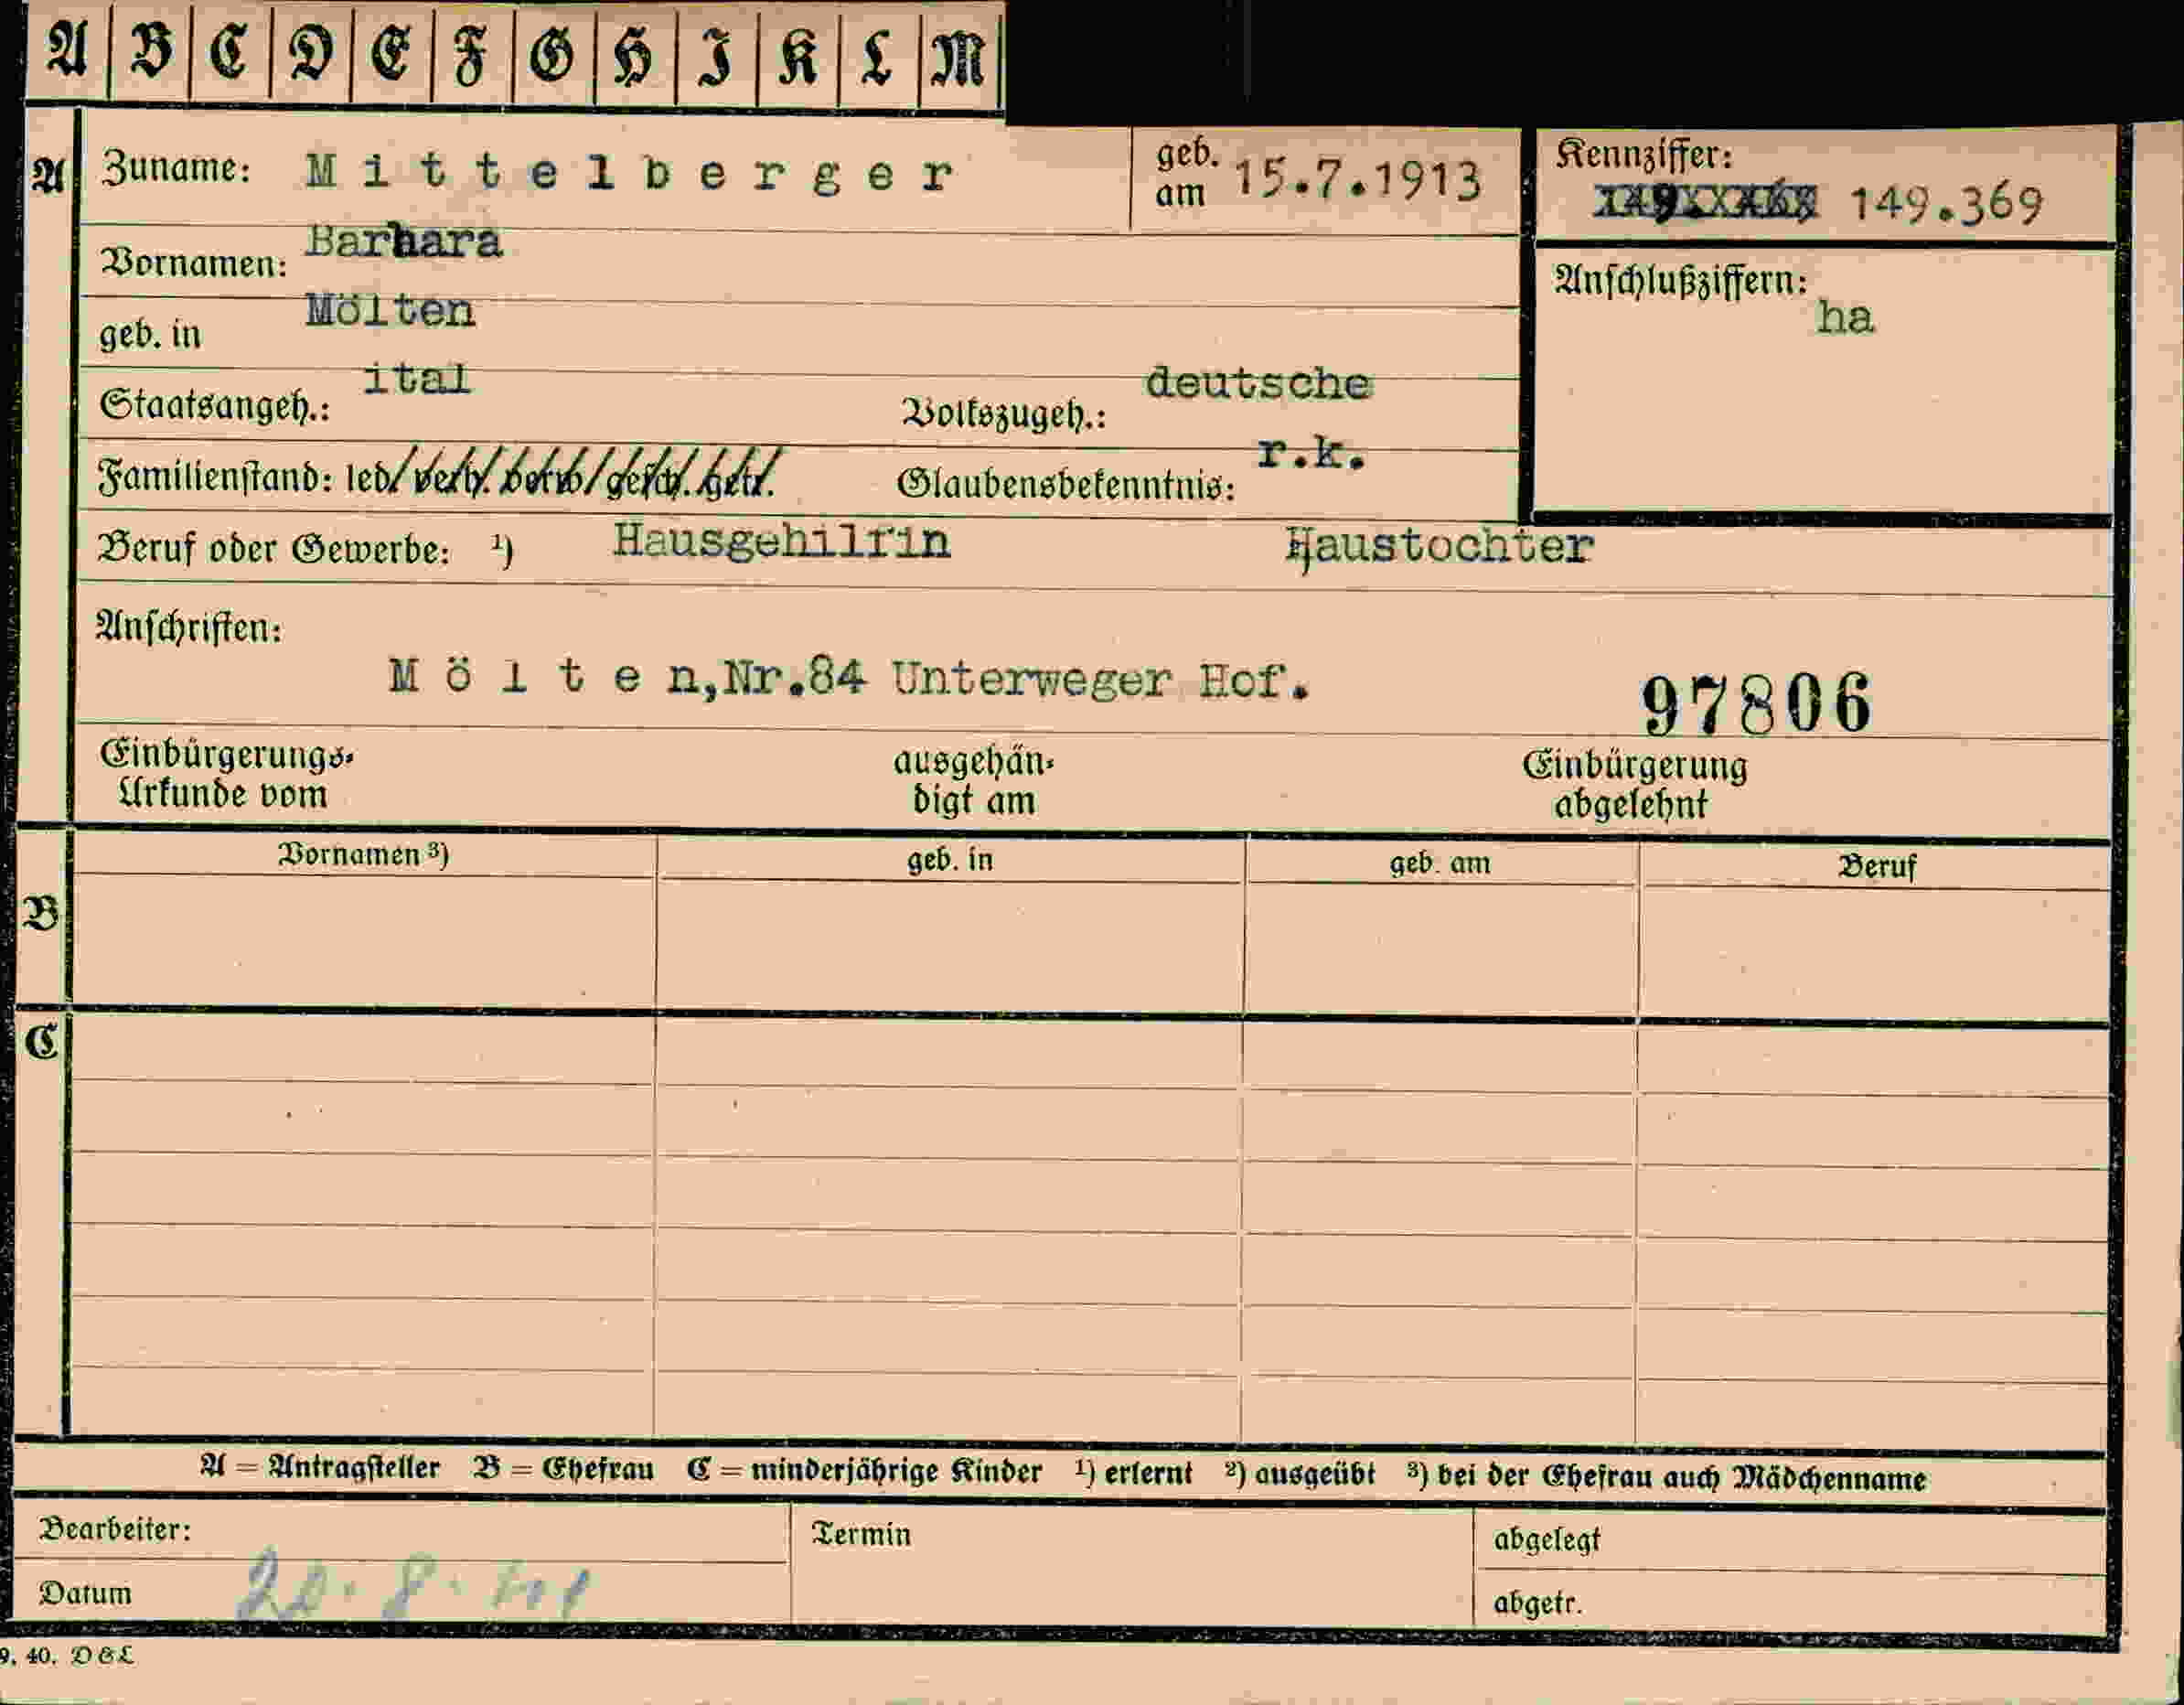 A B C D E F G H I K L M
A Zuname: Mittelberger geb. am 15.7.1913 Kennziffer: 149.369
Vornamen: Barbara
Anschlußziffern: ha
geb. in Mölten
Staatsangeh.: ital Volkszugeh.: deutsche
Familienstand: led/verh./verw./gesch./getr. Glaubensbekenntnis: r.k.
Beruf oder Gewerbe: ¹) Hausgehilfin Haustochter
Anschriften:
Mölten,Nr.84 Unterweger Hof. 97806
Einbürgerungs- ausgehän- Einbürgerung
Urkunde vom digt am abgelehnt
Vornamen ³) geb. in geb. am Beruf
B
C
A = Antragsteller B = Ehefrau C = minderjährige Kinder ¹) erlernt ²) ausgeübt ³) bei der Ehefrau auch Mädchenname
Bearbeiter: Termin abgelegt
Datum abgetr.
9. 40. D&L